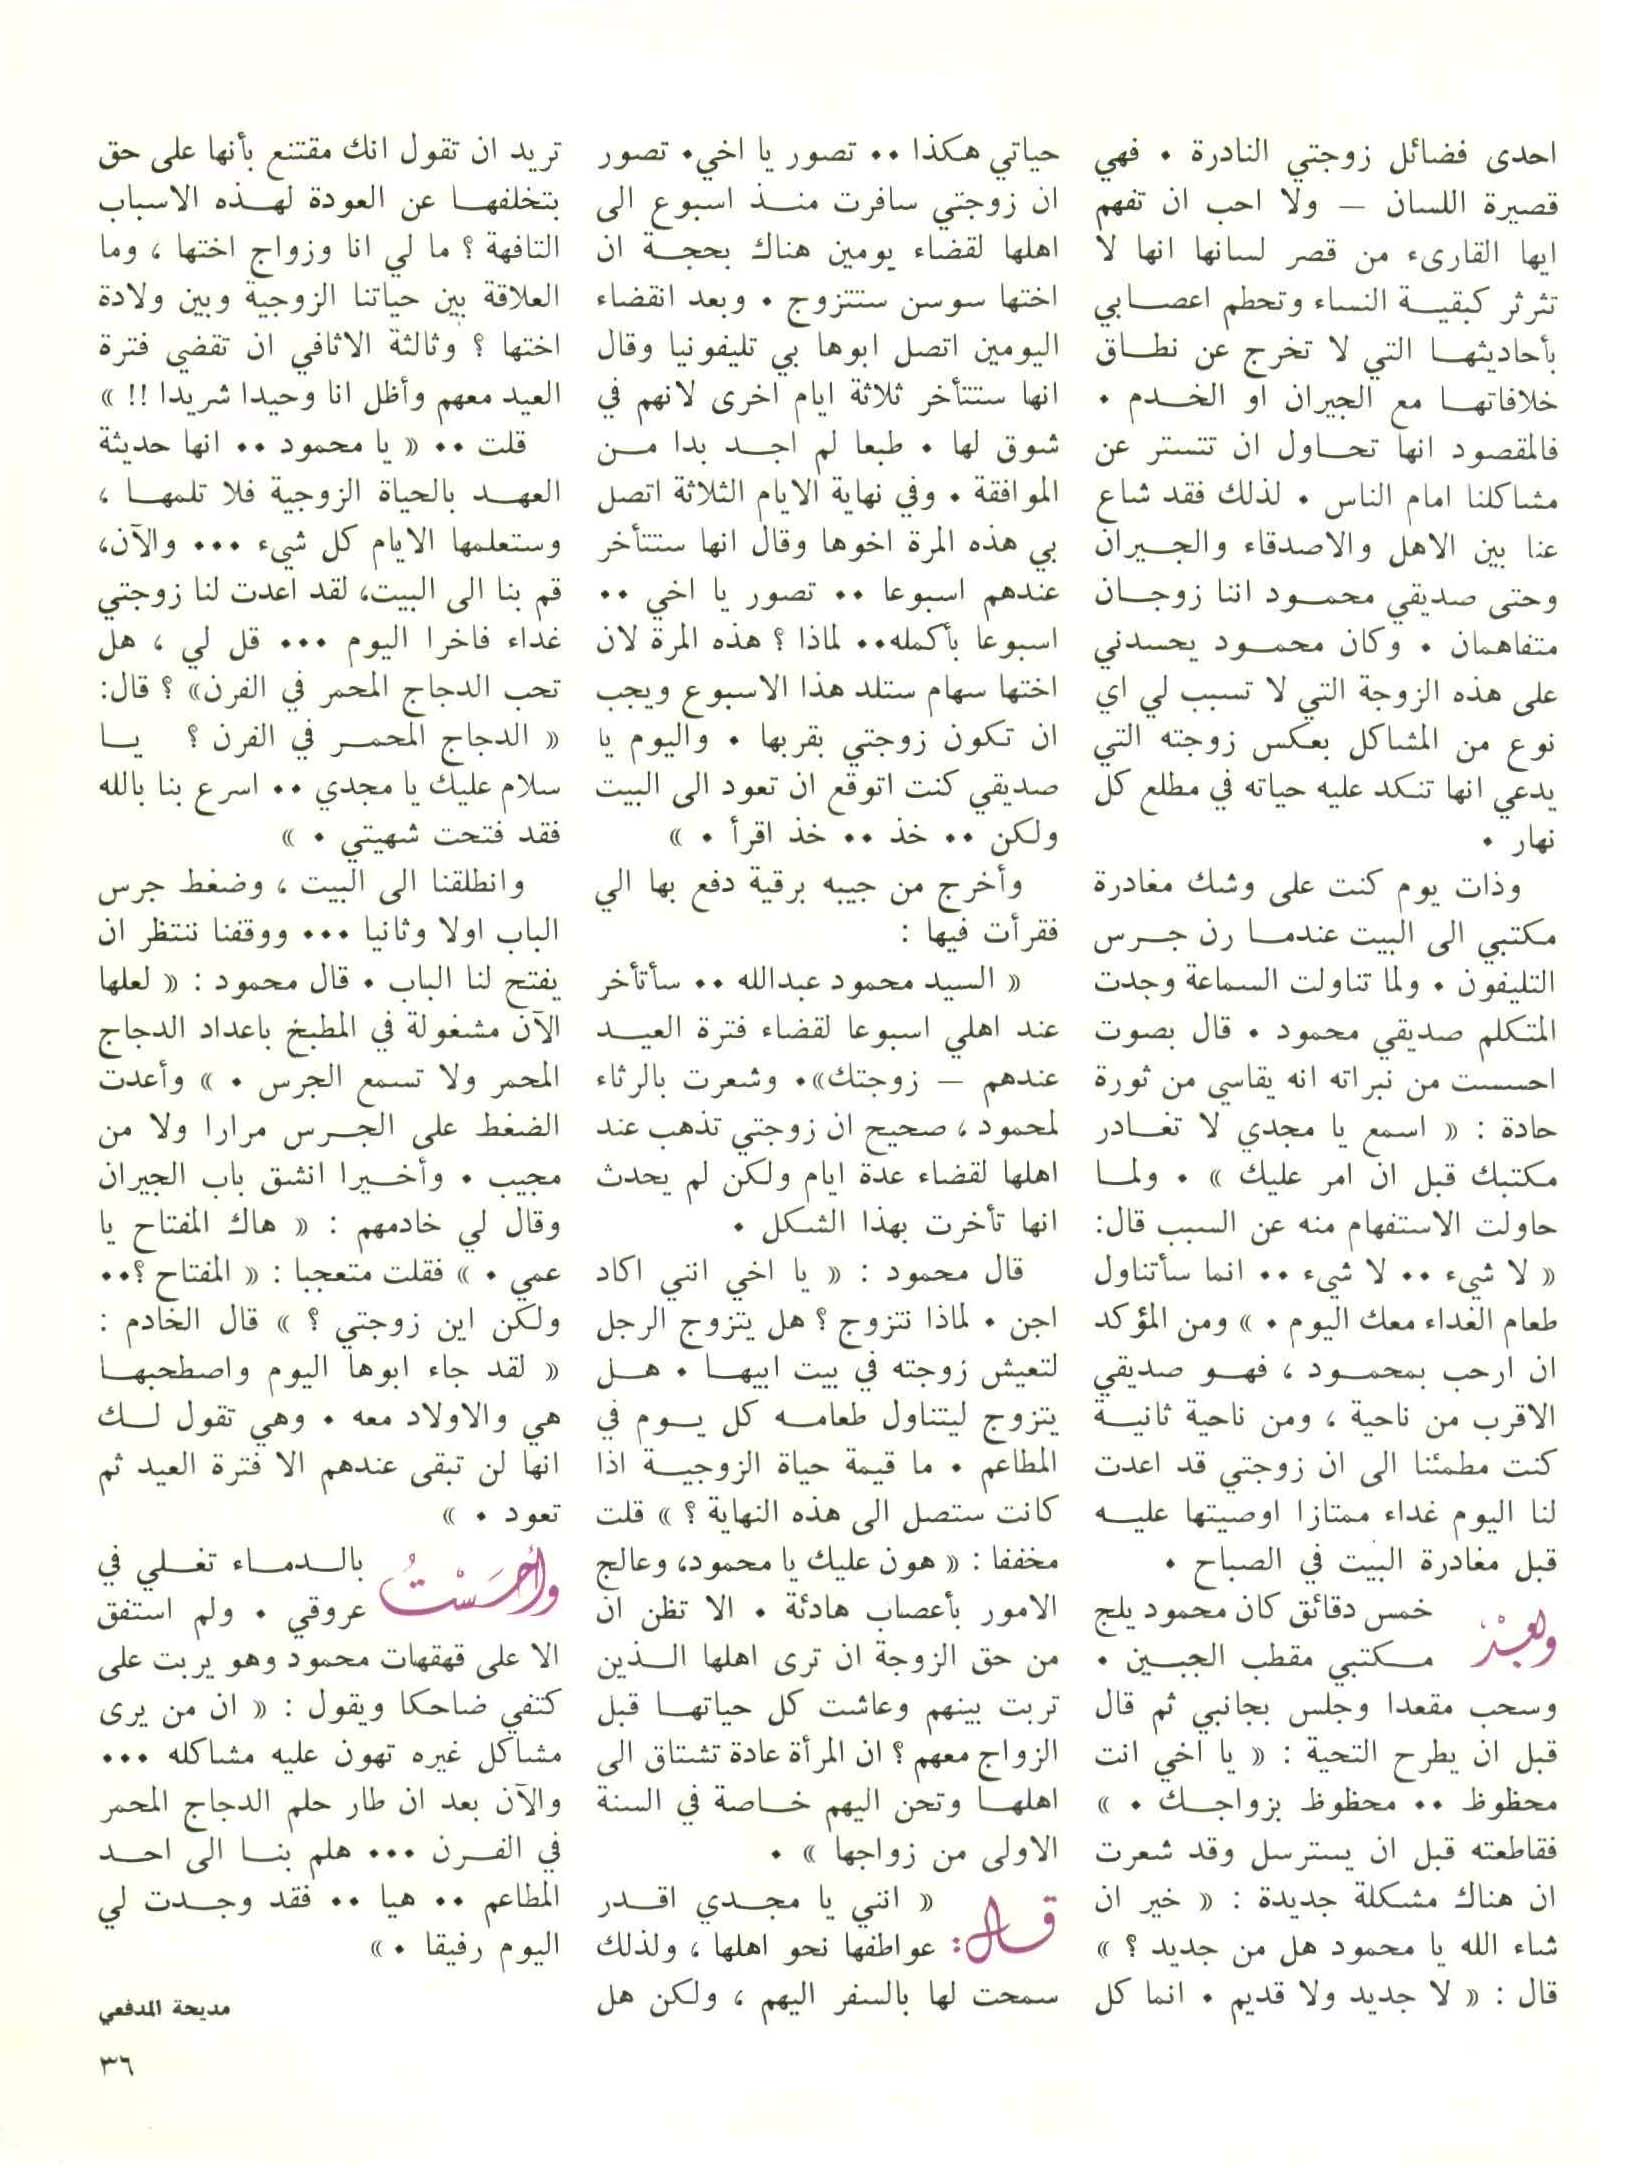 احدى فضائل زوجتي النادرة . فهي
قصيرة اللسان — ولا احب ان تفهم
ايها القارىء من قصر لسانها انها لا
تثرثر كبقية النساء وتحطم اعصابي
بأحاديثها التي لا تخرج عن نطاق
خلافاتها مع الجيران او الخدم .
فالمقصود انها تحاول ان تتستر عن
مشاكلنا امام الناس . لذلك فقد شاع
عنا بين الاهل والاصدقاء والجيران
وحتى صديقي محمود اننا زوجان
متفاهمان . وكان محمود يحسدني
على هذه الزوجة التي لا تسبب لي اي
نوع من المشاكل بعكس زوجته التي
يدعي انها تنكد عليه حياته في مطلع كل
نهار .
وذات يوم كنت على وشك مغادرة
مكتبي الى البيت عندما رن جرس
التليفون . ولما تناولت السماعة وجدت
المتكلم صديقي محمود . قال بصوت
احسست من نبراته انه يقاسي من ثورة
حادة : « اسمع يا مجدي لا تغادر
مكتبك قبل ان امر عليك » . ولما
حاولت الاستفهام منه عن السبب قال:
« لا شيء .. لا شيء .. انما سأتناول
طعام الغداء معك اليوم . » ومن المؤكد
ان ارحب بمحمود ، فهو صديقي
الاقرب من ناحية ، ومن ناحية ثانية
كنت مطمئنا الى ان زوجتي قد اعدت
لنا اليوم غداء ممتازا اوصيتها عليه
قبل مغادرة البيت في الصباح .
وبعد خمس دقائق كان محمود يلج
مكتبي مقطب الجبين .
وسحب مقعدا وجلس بجانبي ثم قال
قبل ان يطرح التحية : « يا اخي انت
محظوظ .. محظوظ بزواجك . »
فقاطعته قبل ان يسترسل وقد شعرت
ان هناك مشكلة جديدة : « خير ان
شاء الله يا محمود هل من جديد ؟ »
قال : « لا جديد ولا قديم . انما كل
حياتي هكذا .. تصور يا اخي. تصور
ان زوجتي سافرت منذ اسبوع الى
اهلها لقضاء يومين هناك بحجة ان
اختها سوسن ستتزوج . وبعد انقضاء
اليومين اتصل ابوها بي تليفونيا وقال
انها ستتأخر ثلاثة ايام اخرى لانهم في
شوق لها . طبعا لم اجد بدا من
الموافقة . وفي نهاية الايام الثلاثة اتصل
بي هذه المرة اخوها وقال انها ستتأخر
عندهم اسبوعا .. تصور يا اخي ..
اسبوعا بأكمله.. لماذا ؟ هذه المرة لان
اختها سهام ستلد هذا الاسبوع ويجب
ان تكون زوجتي بقربها . واليوم يا
صديقي كنت اتوقع ان تعود الى البيت
ولكن .. خذ .. خذ اقرأ . »
وأخرج من جيبه برقية دفع بها الي
فقرأت فيها :
« السيد محمود عبدالله .. سأتأخر
عند اهلي اسبوعا لقضاء فترة العيد
عندهم — زوجتك». وشعرت بالرثاء
لمحمود ، صحيح ان زوجتي تذهب عند
اهلها لقضاء عدة ايام ولكن لم يحدث
انها تأخرت بهذا الشكل .
قال محمود : « يا اخي انني اكاد
اجن . لماذا نتزوج ؟ هل يتزوج الرجل
لتعيش زوجته في بيت ابيها . هل
يتزوج ليتناول طعامه كل يوم في
المطاعم . ما قيمة حياة الزوجية اذا
كانت ستصل الى هذه النهاية ؟ » قلت
مخففا : « هون عليك يا محمود، وعالج
الامور بأعصاب هادئة . الا تظن ان
من حق الزوجة ان ترى اهلها الذين
تربت بينهم وعاشت كل حياتها قبل
الزواج معهم ؟ ان المرأة عادة تشتاق الى
اهلها وتحن اليهم خاصة في السنة
الاولى من زواجها » .
قال: « انني يا مجدي اقدر
عواطفها نحو اهلها ، ولذلك
سمحت لها بالسفر اليهم ، ولكن هل
تريد ان تقول انك مقتنع بأنها على حق
بتخلفها عن العودة لهذه الاسباب
التافهة ؟ ما لي انا وزواج اختها ، وما
العلاقة بين حياتنا الزوجية وبين ولادة
اختها ؟ وثالثة الاثافي ان تقضي فترة
العيد معهم وأظل انا وحيدا شريدا !! »
قلت .. « يا محمود .. انها حديثة
العهد بالحياة الزوجية فلا تلمها ،
وستعلمها الايام كل شيء ... والآن،
قم بنا الى البيت، لقد اعدت لنا زوجتي
غداء فاخرا اليوم ... قل لي ، هل
تحب الدجاج المحمر في الفرن» ؟ قال:
« الدجاج المحمر في الفرن ؟ يا
سلام عليك يا مجدي .. اسرع بنا بالله
فقد فتحت شهيتي . »
وانطلقنا الى البيت ، وضغط جرس
الباب اولا وثانيا ... ووقفنا ننتظر ان
يفتح لنا الباب . قال محمود : « لعلها
الآن مشغولة في المطبخ باعداد الدجاج
المحمر ولا تسمع الجرس . » وأعدت
الضغط على الجرس مرارا ولا من
مجيب . وأخيرا انشق باب الجيران
وقال لي خادمهم : « هاك المفتاح يا
عمي . » فقلت متعجبا : « المفتاح ؟..
ولكن اين زوجتي ؟ » قال الخادم :
« لقد جاء ابوها اليوم واصطحبها
هي والاولاد معه . وهي تقول لك
انها لن تبقى عندهم الا فترة العيد ثم
تعود . »
وأحسست بالدماء تغلي في
عروقي . ولم استفق
الا على قهقهات محمود وهو يربت على
كتفي ضاحكا ويقول : « ان من يرى
مشاكل غيره تهون عليه مشاكله ...
والآن بعد ان طار حلم الدجاج المحمر
في الفرن ... هلم بنا الى احد
المطاعم .. هيا .. فقد وجدت لي
اليوم رفيقا . »
مديحة المدفعي
٣٦